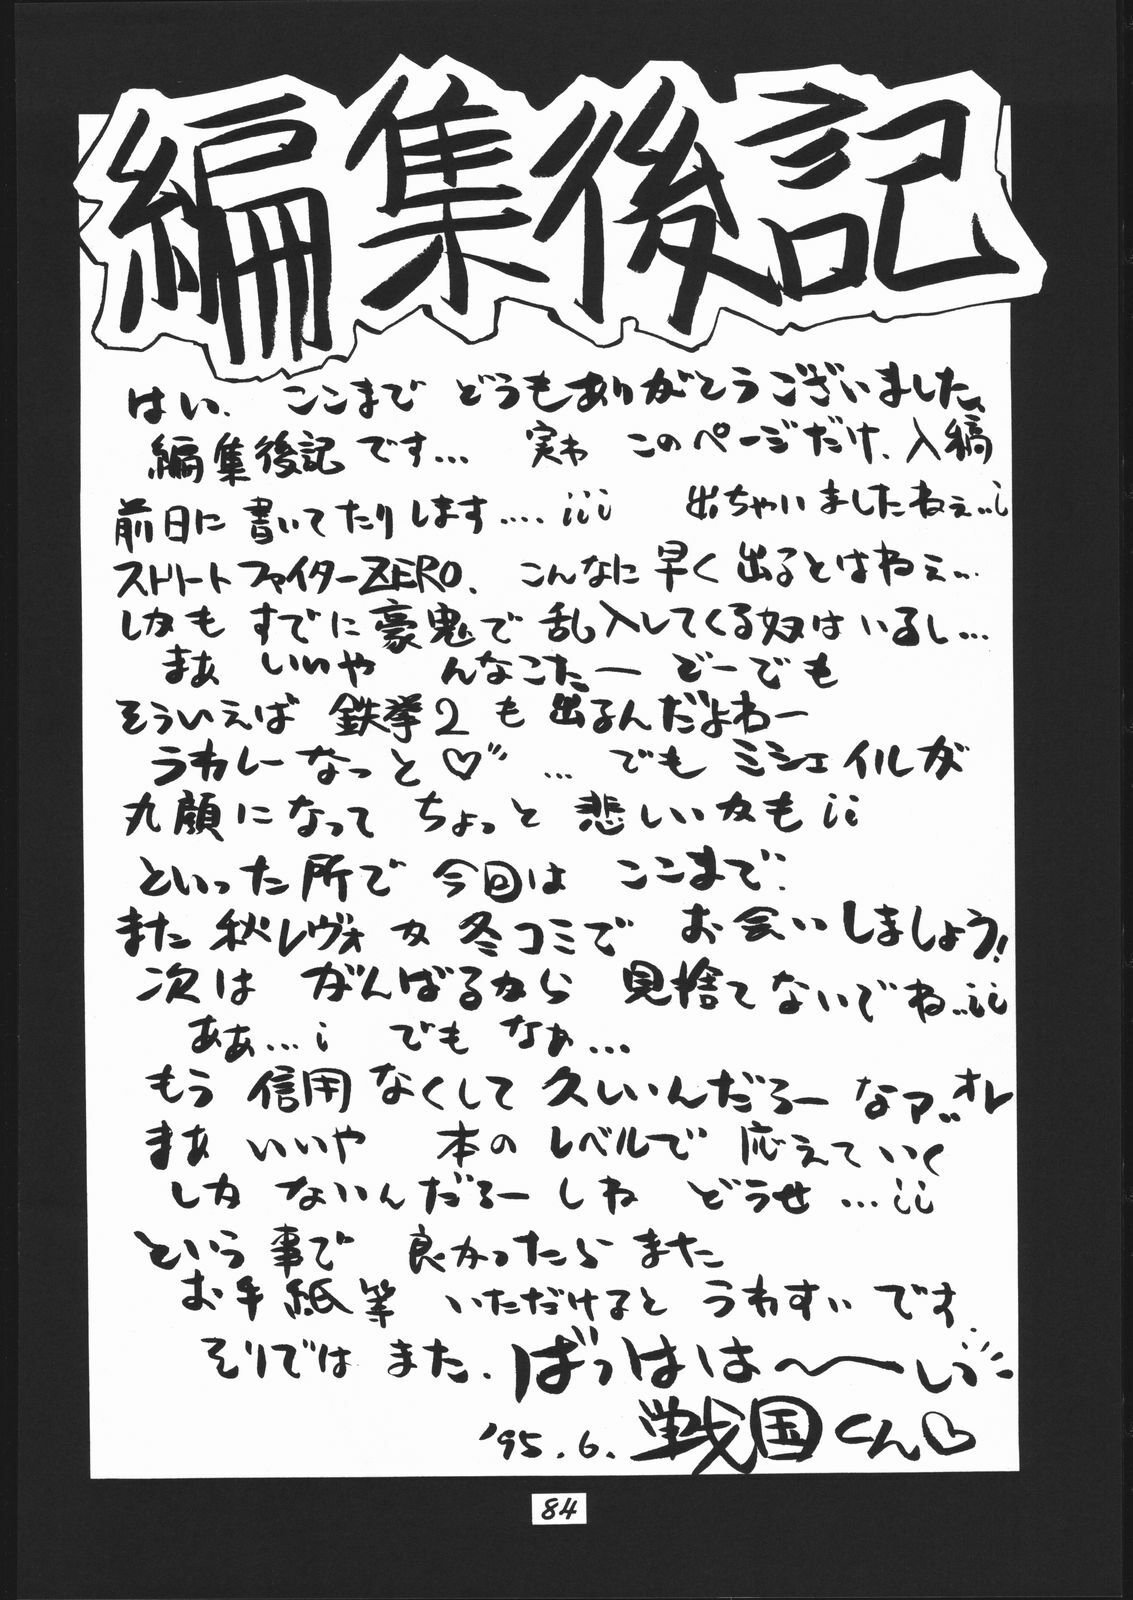 編集後記
はい、ここまで どうもありがとうございました、
編集後記です… 実わ このページだけ、入稿
前日に書いてたりします‥‥iii 出ちゃいましたねぇ‥i
ストリートファイターZERO、こんなに早く出るとはねぇ…
しかも すでに豪鬼で乱入してくる奴はいるし…
まぁ いいや んなこたー どーでも
そういえば 鉄拳2も出るんだよねー
うれしーなっと♡ … でもミシェイルが
丸顔になって ちょっと悲しいかもii
といった所で 今回は ここまで.
また 秋レヴォか冬コミで お会いしましょう!
次は がんばるから 見捨てないでね‥ii
ああ…i でもなぁ…
もう 信用なくして久しいんだろーなァ‥オレ
まぁ いいや 本のレベルで応えていく
しか ないんだろーしね どうせ…ii
という事で 良かったら また
お手紙等 いただけると うれすぃです.
そりでは また. ばっはは〜〜いっ
'95.6. 戦国くん♡
84